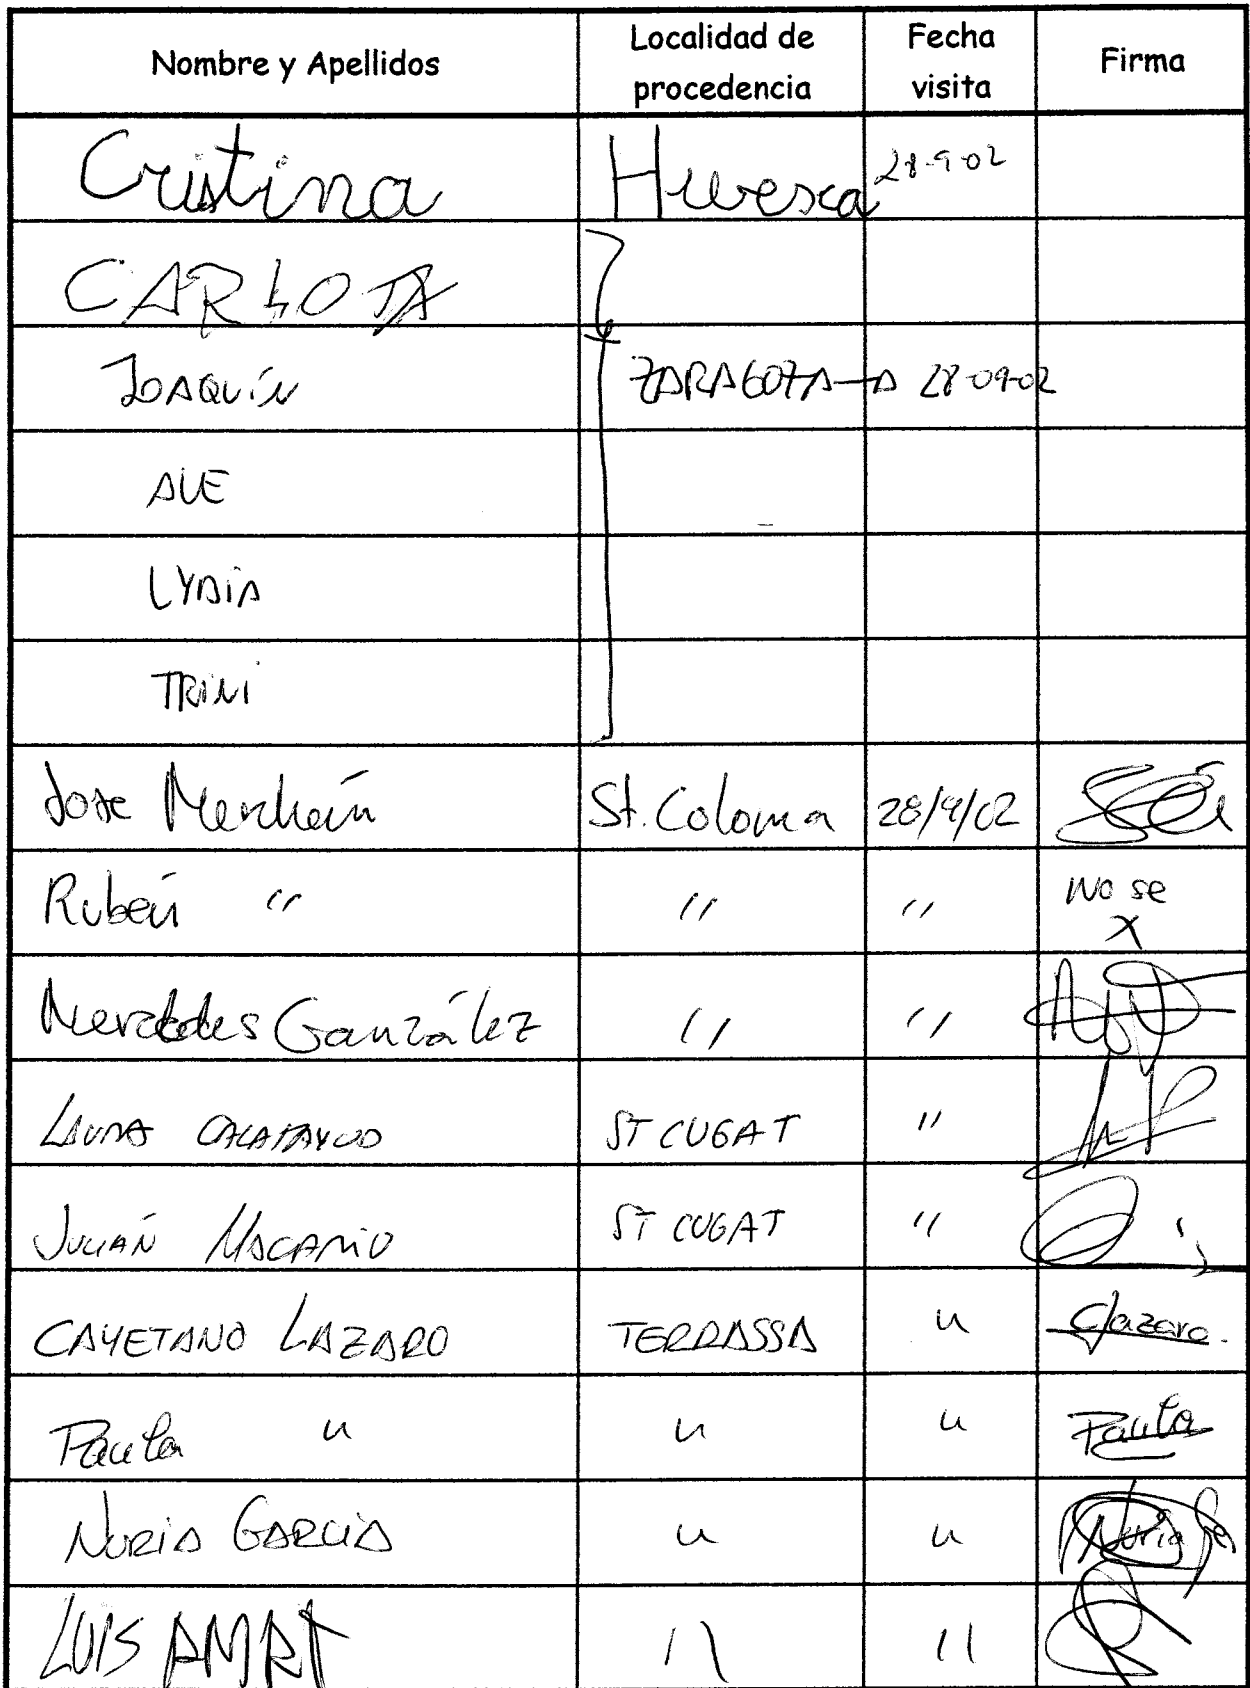 Nombre y Apellidos Localidad de procedencia Fecha visita Firma
Cristina Huesca 28-9-02
CARLOTA
JOAQUÍN ZARAGOZA 28-09-02
AVE
LYDIA
TRINI
Jose Merchán St. Coloma 28/9/02
Rubén " " " No se X
Mercedes González " "
LAURA CALATAYUD ST CUGAT "
JULIÁN MACARIO ST CUGAT "
CAYETANO LAZARO TERRASSA " Clazaro.
Paula " " " Paula
NURIA GARCIA " " Nuria
LUIS AMAT " "